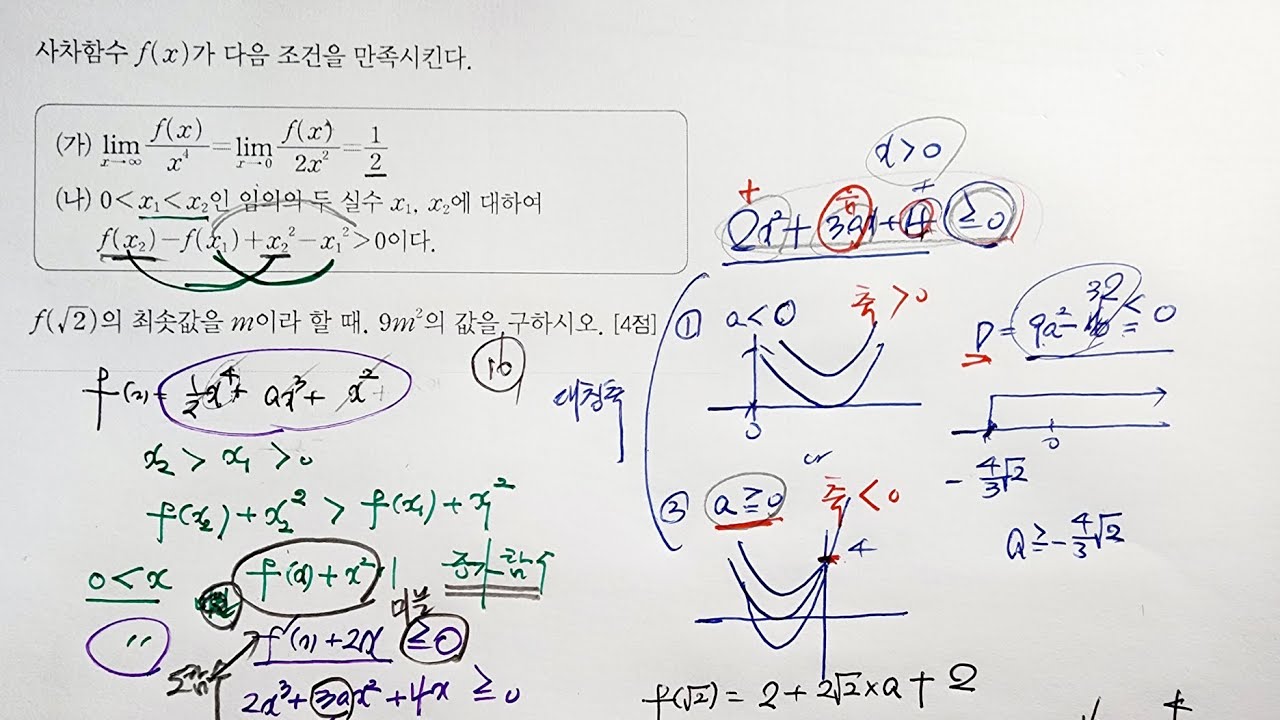 사차함수 f(x)가 다음 조건을 만족시킨다.
(가) lim_{x→∞} f(x)/x⁴ = lim_{x→0} f(x)/2x² = 1/2
(나) 0<x₁<x₂인 임의의 두 실수 x₁, x₂에 대하여
f(x₂)−f(x₁)+x₂²−x₁²>0이다.
f(√2)의 최솟값을 m이라 할 때, 9m²의 값을 구하시오. [4점]
16
f(x)= 1/2x⁴+ ax³+ x²
x₂ > x₁ > 0
f(x₂)+x₂² > f(x₁)+x₁²
0<x f(x)+x² 증가함수
미분
〃 f'(x)+2x ≥0
도함수
2x³+3ax²+4x ≥0
x>0
+ +
2x²+3ax+4 ≥0
대칭축
① a<0 축>0
0
or
② a≥0 축<0
4
D= 9a²−32 ≤ 0
0
−4/3√2
a≥−4/3√2
f(√2) = 2+2√2×a+2